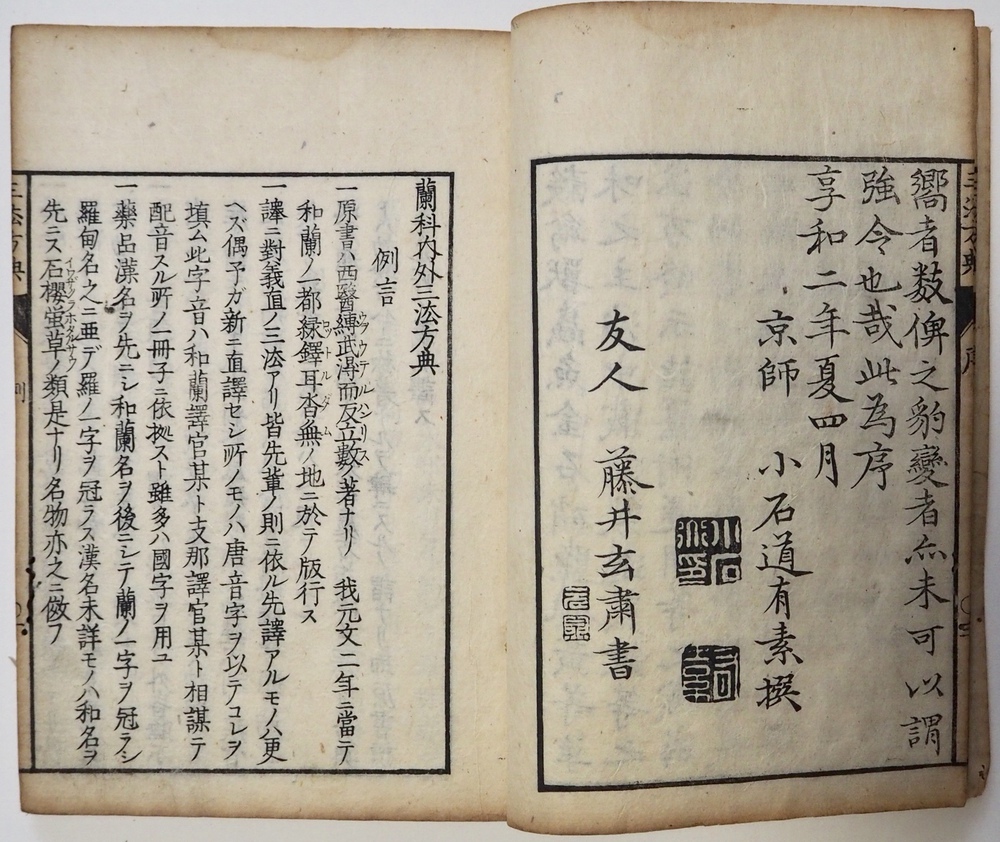 嚮者数俾之豹變者亦未可以謂
強令也哉此為序
享和二年夏四月
京師　小石道有素撰
友人　藤井玄肅書
蘭科内外三法方典
例言
一原書ハ西醫縛武淂而反立數ノ著ナリ　我元文二年ニ當テ
和蘭ノ一都緑鐸耳沓無ノ地ニ於テ版行ス
一譯ニ對義直ノ三法アリ皆先輩ノ則ニ依ル先譯アルモノハ更
ヘズ偶予ガ新ニ直譯セシ所ノモノハ唐音字ヲ以テコレヲ
填ム此字音ハ和蘭譯官某ト支那譯官某ト相謀テ
配音スル所ノ一冊子ニ依拠スト雖多ハ國字ヲ用ユ
一藥品漢名ヲ先ニシ和蘭名ヲ後ニシテ蘭ノ一字ヲ冠ラシ
羅甸名之ニ亜デ羅ノ一字ヲ冠ラス漢名未詳モノハ和名ヲ
先ニス石櫻螢草ノ類是ナリ名物亦之ニ倣フ